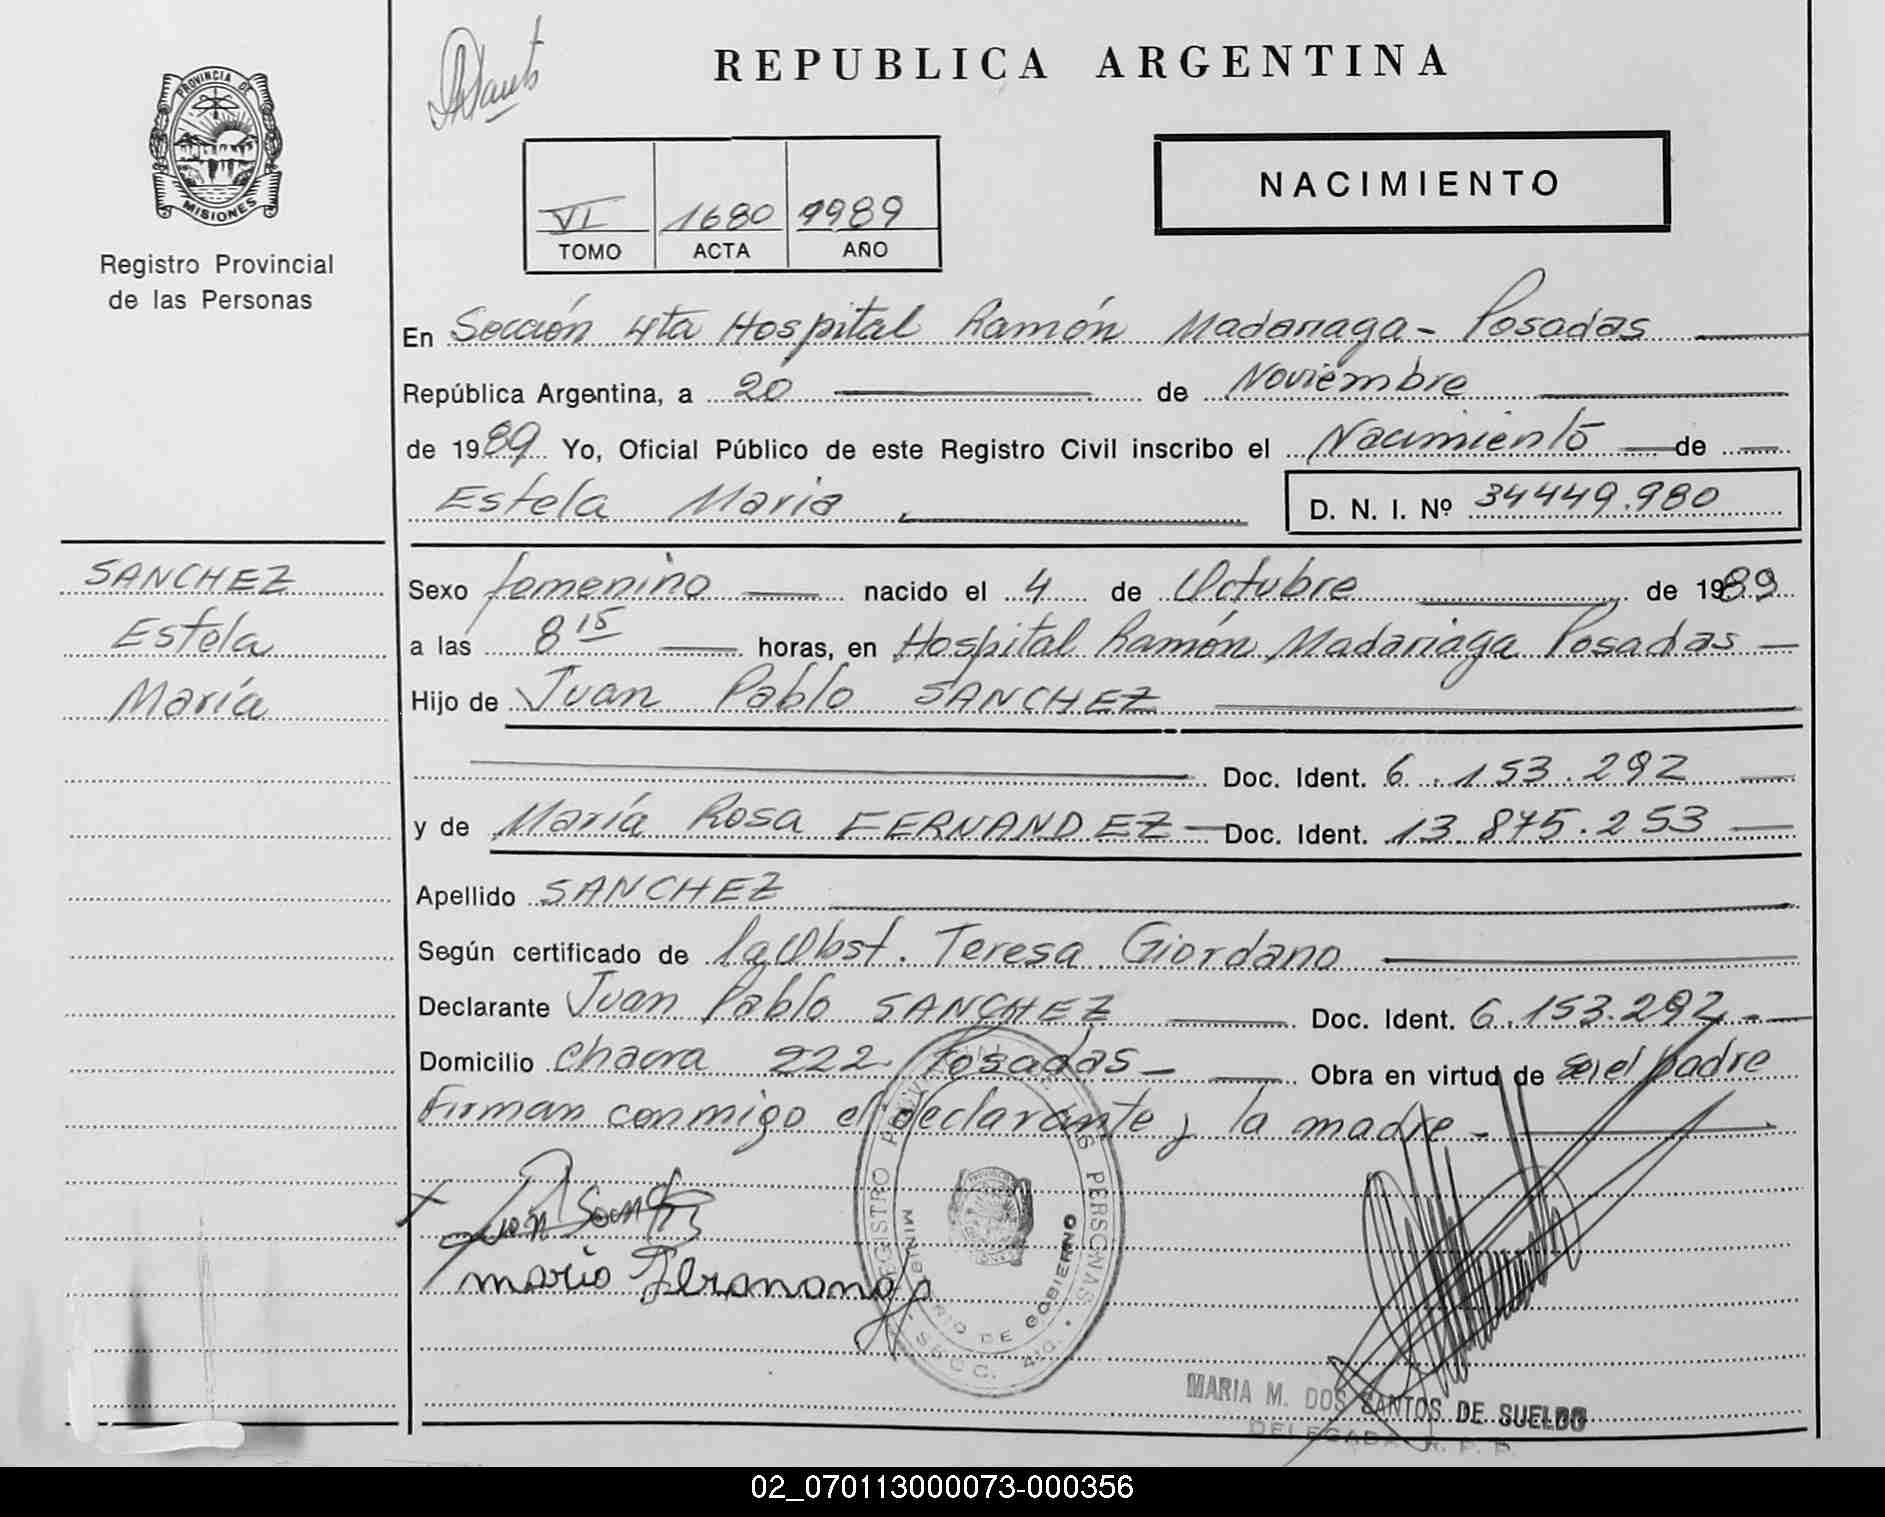 REPUBLICA ARGENTINA
PROVINCIA DE
MISIONES
Registro Provincial
de las Personas
VI 1680 1989
TOMO ACTA AÑO
NACIMIENTO
En Sección 4ta Hospital Ramón Madariaga - Posadas
República Argentina, a 20 de Noviembre
de 1989 Yo, Oficial Público de este Registro Civil inscribo el Nacimiento de
Estela Maria D. N. I. Nº 34449.980
SANCHEZ
Estela
María
Sexo femenino nacido el 4 de Octubre de 1989
a las 8 15 horas, en Hospital Ramón Madariaga Posadas
Hijo de Juan Pablo SANCHEZ
Doc. Ident. 6.153.292
y de María Rosa FERNANDEZ Doc. Ident. 13.875.253
Apellido SANCHEZ
Según certificado de la Obst. Teresa Giordano
Declarante Juan Pablo SANCHEZ Doc. Ident. 6.153.292
Domicilio Chacra 222 Posadas Obra en virtud de ser el padre
Firman conmigo el declarante y la madre
REGISTRO PROVINCIAL DE LAS PERSONAS
MINISTERIO DE GOBIERNO
SECC. 4ta.
MARIA M. DOS SANTOS DE SUELDO
DELEGADA R. P. P.
02_070113000073-000356